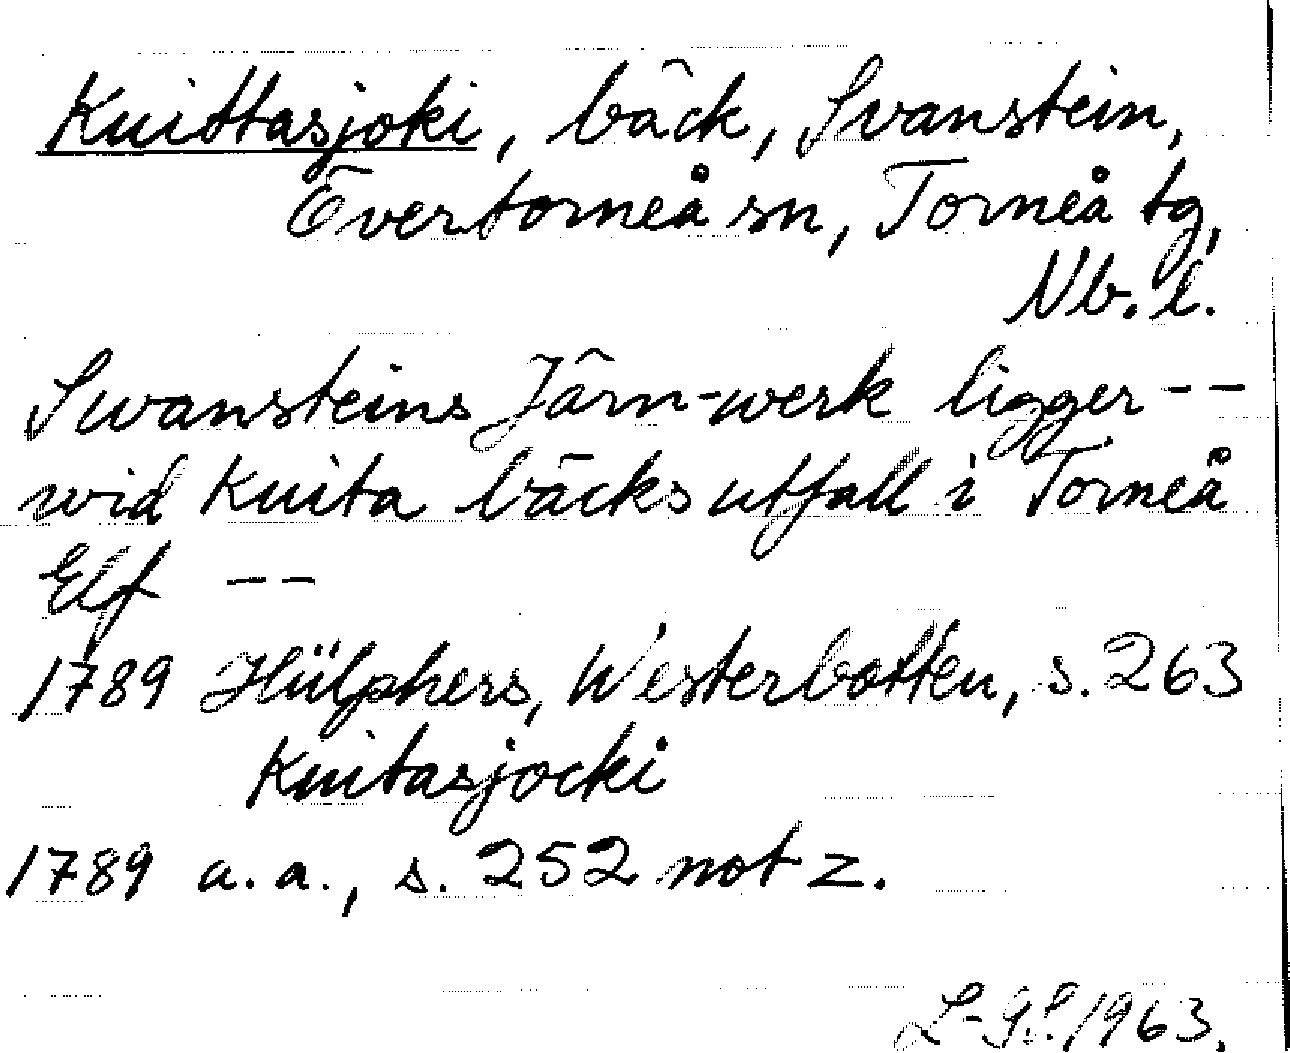 Kuittasjoki, bäck, Svanstein,
Övertorneå sn, Torneå tg,
Nb. l.
Swansteins Järn-werk ligger --
wid Kuita bäcks utfall i Torneå
Elf --
1789 Hülphers, Westerbotten, s. 263
Kuitasjocki
1789 a. a., s. 252 not z.
L-G.S. 1963.